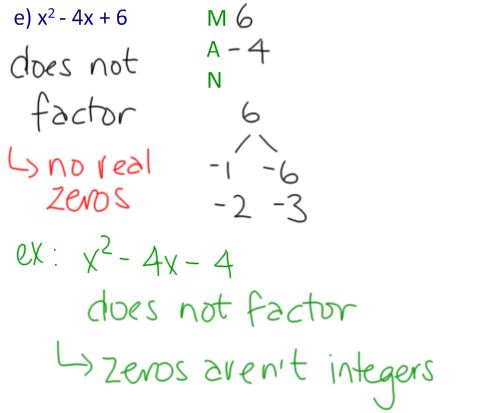 e) x² - 4x + 6
does not
factor
↳ no real
zeros
M 6
A -4
N
6
-1 -6
-2 -3
ex: x² - 4x - 4
does not factor
↳ zeros aren't integers